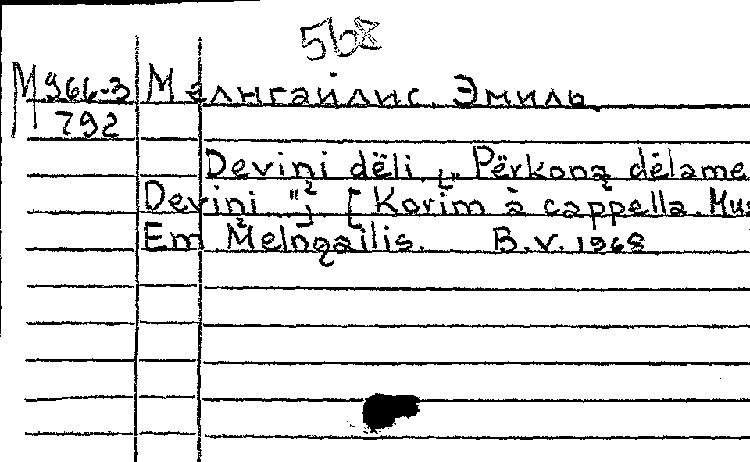 568
М966-3 Мелнгайлис, Эмиль.
792
Deviņi dēli „Pērkoņa dēlame
Deviņi"; [Korim à cappella. Mus
Em Melngailis. B.v. 1968